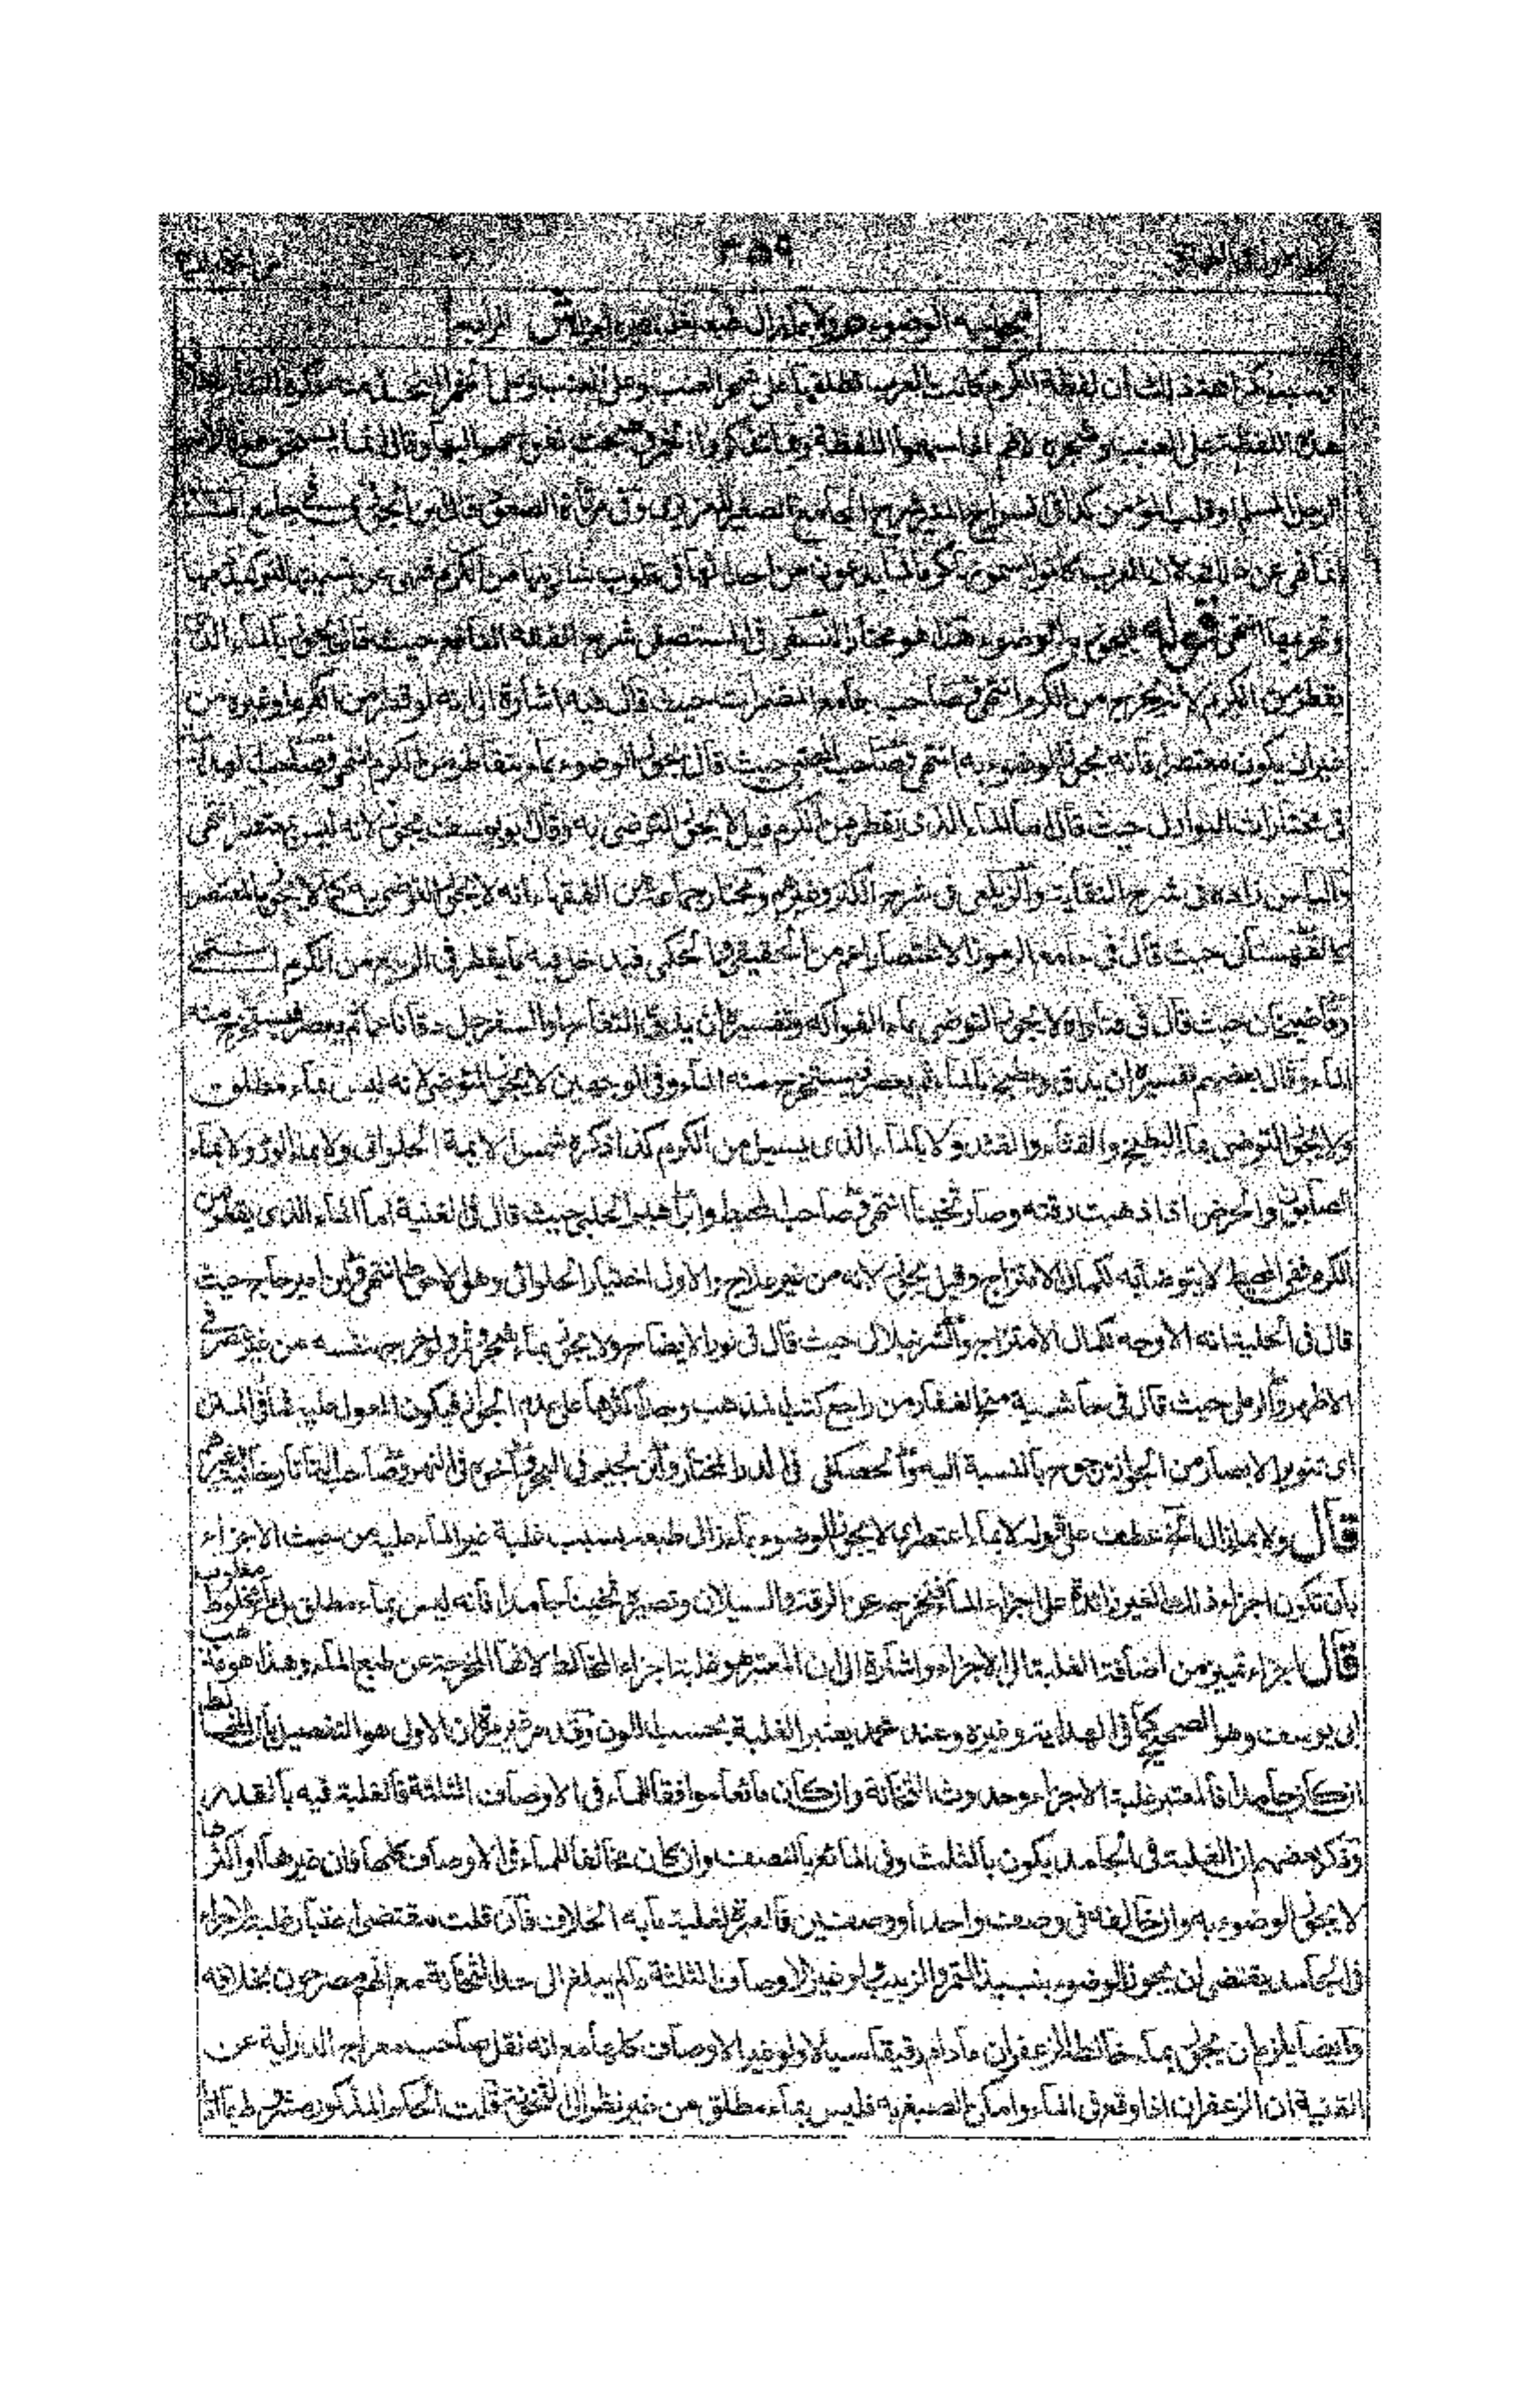 ٣٥٩
يجوز به الوضوء هو ولا بماء زال طبعه بغلبة غيره اجزاء
وسبب كراهة ذلك أن لفظة الكرم كانت العرب تطلقها على شجر العنب وعلى العنب وعلى الخمر
هذه اللفظة على العنب وشجره لانهم اذا سمعوا اللفظة ربما تذكروا الخمر نفوسهم اليها وقال انما يستحق هذا الاسم
الرجل المسلم او قلب المؤمن كذا فى السراج المنير شرح الجامع الصغير للعزيزى وفى مرقاة الصعود قال ابن الجوزى
انما نهى عن ذلك لان العرب كانوا يسمونها كرما لما يدعون من احداثها فى قلوب شاربيها من الكرم فنهى عن تسميتها
وتحريمها انتهى قوله فيجوز به الوضوء هذا هو مختار النسفى فى المستصفى شرح الفقه النافع حيث قال يجوز بالماء الذى
يقطر من الكرم لانه يخرج من الكرم انتهى وصاحب جامع المضمرات حيث قال فيه اشارة الى انه لو قطر من الكرم او غيره من
غير ان يكون معتصرا فانه يجوز الوضوء به انتهى وصاحب المجتبى حيث قال يجوز الوضوء بماء يتقاطر من الكرم انتهى وصاحب الهداية
فى مختارات النوازل حيث قال اما الماء الذى يقطر من الكرم قيل لا يجوز التوضى به وقال ابو يوسف يجوز لانه ليس بمعتصر انتهى
والياس زاده فى شرح النقاية والزيلعى فى شرح الكنز وغيرهم ومختار جماعة من الفقهاء انه لا يجوز التوضى به كما لا يجوز بالمعتصر
كالقهستانى حيث قال فى جامع الرموز الاعتصار اعم من الحقيقى والحكمى فيدخل فيه ما يقطر فى الربيع من الكرم انتهى
وقاضيخان حيث قال فى فتاواه لا يجوز التوضى بماء الفواكه وتفسيره ان يدق التفاح او السفرجل دقا ناعما ثم يعصر فيستخرج منه
الماء وقال بعضهم تفسيره ان يدق ويطبخ بالماء ثم يعصر فيستخرج منه الماء وفى الوجهين لا يجوز التوضى لانه ليس بماء مطلق
ولا يجوز التوضى بماء البطيخ والقثاء والقثد ولا بالماء الذى يسيل من الكرم كذا ذكره شمس الايمة الحلوانى ولا بماء الورد ولا بماء
الصابون والحرض اذا ذهبت رقته وصار ثخينا انتهى وصاحب المحيط وابراهيم الحلبى حيث قال فى الغنية اما الماء الذى يقطر من
الكرم ففى المحيط لا يتوضأ به لكمال الامتزاج وقيل يجوز لانه من غير علاج والاول اختيار الحلوانى وهو الاحوط انتهى وابن امير حاج حيث
قال فى الحلية انه الاوجه لكمال الامتزاج والشرنبلالى حيث قال فى نور الايضاح ولا يجوز بماء شجر وثمر ولو خرج بنفسه من غير عصر فى
الاظهر والرملى حيث قال فى حاشية منح الغفار من راجع كتب المذهب وجد اكثرها على عدم الجواز فيكون المعول عليه فما فى المتن
اى تنوير الابصار من الجواز مرجوح بالنسبة اليه والحصكفى فى الدر المختار وابن نجيم فى البحر واخوه فى النهر وصاحب التاتارخانية وغيرهم
قال ولا بماء زال الخ عطف على قوله لا بماء اعتصر اى لا يجوز الوضوء بماء زال طبعه بسبب غلبة غير الماء عليه من حيث الاجزاء
بأن تكون اجزاء ذلك الغير زائدة على اجزاء الماء فتخرجه عن الرقة والسيلان وتصيره ثخينا جامدا فانه ليس بماء مطلق بل مخلوط مغلوب
قال اجزاء تمييز من اضافة الغلبة الى الاجزاء واشارة الى ان المعتبر هو غلبة اجزاء المخالط لانها المخرجة عن طبع الماء وهذا هو مذهب
ابى يوسف وهو الصحيح كما فى الهداية وغيره وعند محمد يعتبر الغلبة بحسب اللون وقد مر غير مرة ان الاولى هو التفصيل بأن المخالط
ان كان جامدا فالمعتبر غلبة الاجزاء وحدوث الثخانة وان كان مائعا موافقا للماء فى الاوصاف الثلثة فالغلبة فيه بالقدر
وذكر بعضهم ان الغلبة فى الجامد يكون بالثلث وفى المائع بالنصف وان كان مخالفا للماء فى الاوصاف كلها فان غيرها او اكثرها
لا يجوز الوضوء به وان خالفه فى وصف واحد او وصفين فالعبرة لغلبة ما به الخلاف فان قلت مقتضى اعتبار غلبة الاجزاء
فى الجامد يقتضى ان يجوز الوضوء بنبيذ التمر والزبيب ولو غير الاوصاف الثلثة ما لم يبلغ الى حد الثخانة مع انهم مصرحون بخلافه
وايضا يلزم ان يجوز بماء خالطه الزعفران ما دام رقيقا سيالا ولو غير الاوصاف كلها مع انه نقل صاحب معراج الدراية عن
القنية ان الزعفران اذا وقع فى الماء وامكن الصبغ به فليس بماء مطلق من غير نظر الى الثخونة قلت الحكم المذكور مشروط بما اذا